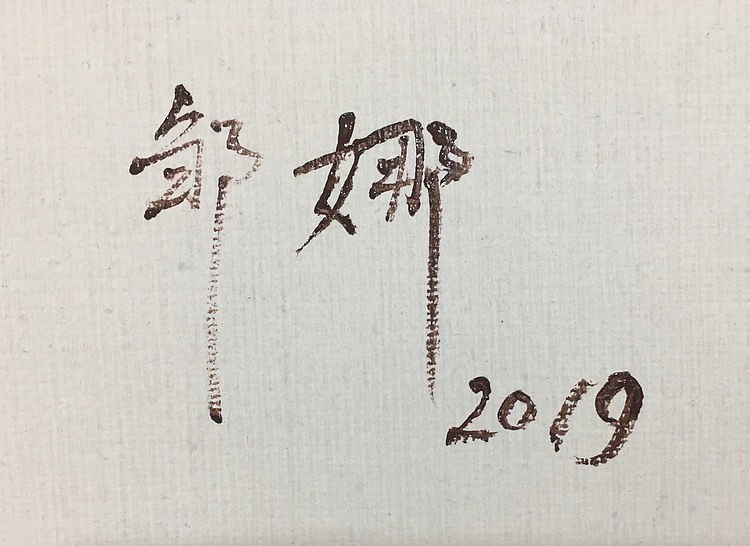 邹娜
2019